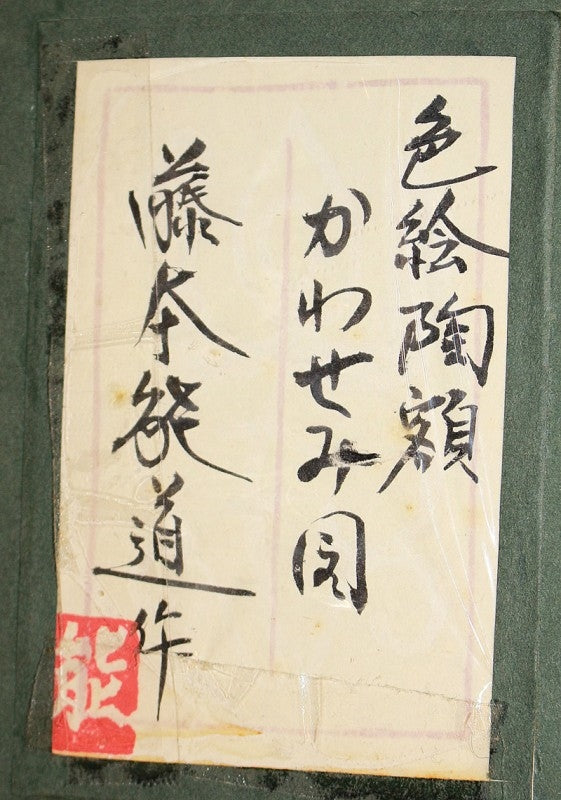 色絵陶額
かわせみ図
藤本能道作
能